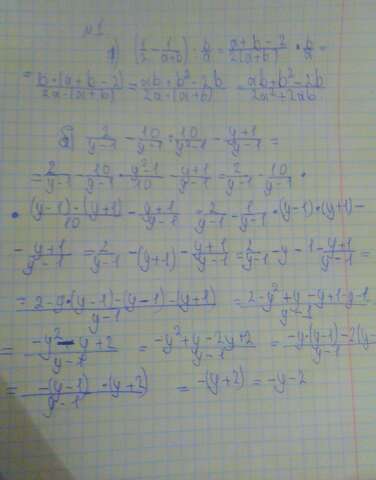 №1
а) (1/2 - 1/(a+b)) · b/a = (a+b-2)/(2(a+b)) · b/a =
= (b·(a+b-2))/(2a·(a+b)) = (ab+b²-2b)/(2a·(a+b)) = (ab+b²-2b)/(2a²+2ab)
б) 2/(y-1) - 10/(y-1) : 10/(y²-1) - (y+1)/(y-1) =
= 2/(y-1) - 10/(y-1) · (y²-1)/10 - (y+1)/(y-1) = 2/(y-1) - 10/(y-1) ·
· ((y-1)·(y+1))/10 - (y+1)/(y-1) = 2/(y-1) - 1/(y-1) · (y-1)·(y+1) -
- (y+1)/(y-1) = 2/(y-1) - (y+1) - (y+1)/(y-1) = 2/(y-1) - y - 1 - (y+1)/(y-1) =
= (2-y·(y-1)-(y-1)-(y+1))/(y-1) = (2-y²+y-y+1-y-1)/(y-1)
= (-y²-y+2)/(y-1) = (-y²+y-2y+2)/(y-1) = (-y·(y-1)-2(y
= (-(y-1)·(y+2))/(y-1) = -(y+2) = -y-2